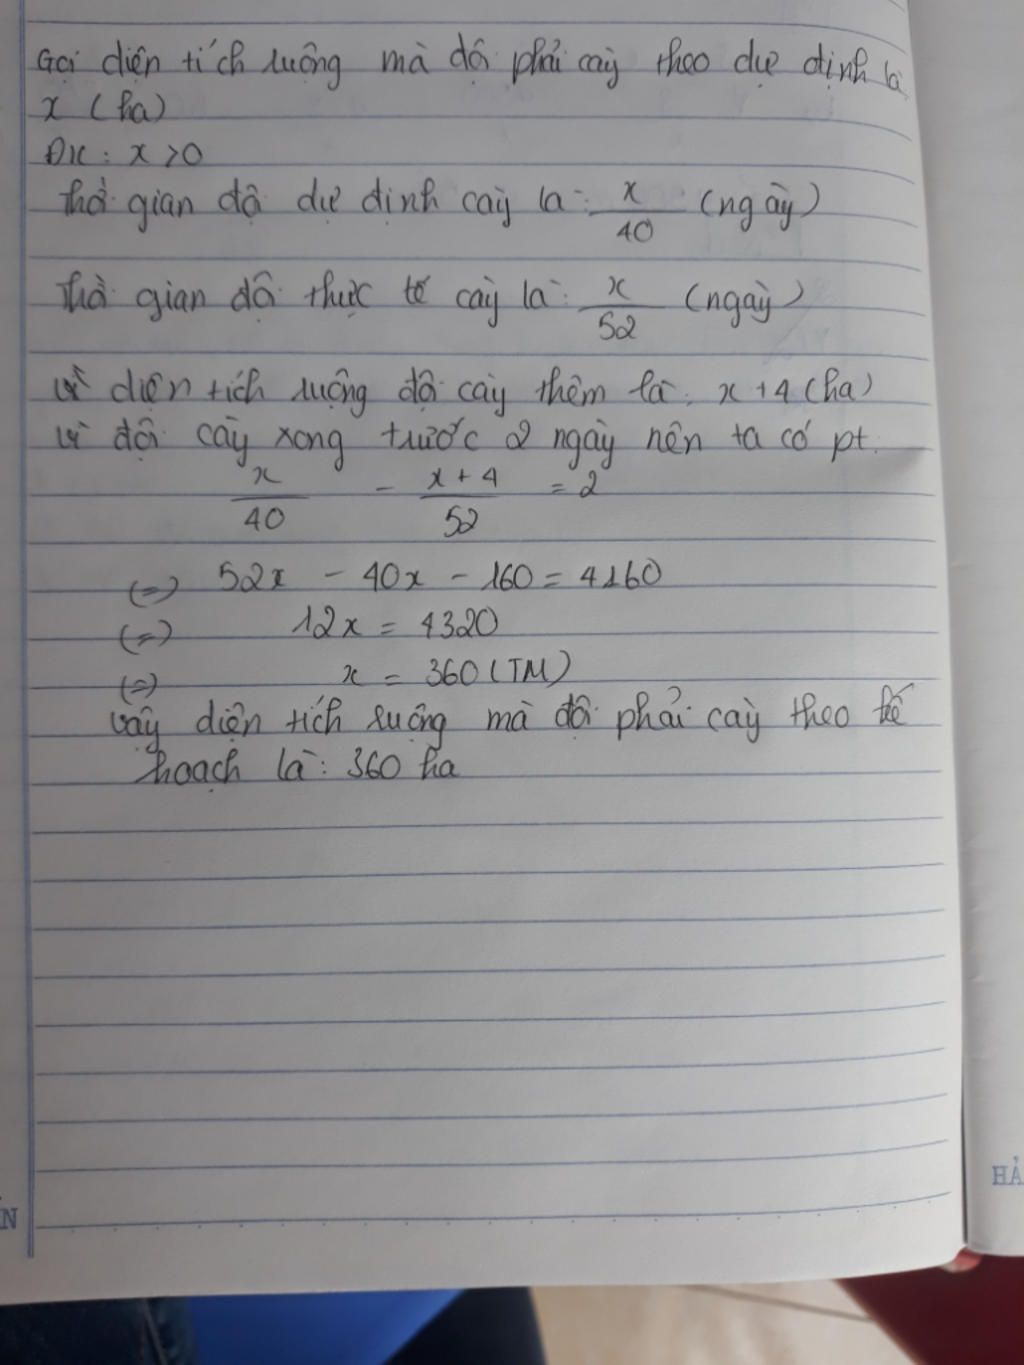 Gọi diện tích ruộng mà đội phải cày theo dự định là
x (ha)
ĐK: x >0
Thời gian đội dự định cày là: x/40 (ngày)
Thời gian đội thực tế cày là: x/52 (ngày)
Vì diện tích ruộng đội cày thêm là: x + 4 (ha)
Vì đội cày xong trước 2 ngày nên ta có pt:
x/40 - x + 4/52 = 2
(=) 52x - 40x - 160 = 4160
(=) 12x = 4320
(=) x = 360 (TM)
Vậy diện tích ruộng mà đội phải cày theo kế
hoạch là: 360 ha
HẢ
N